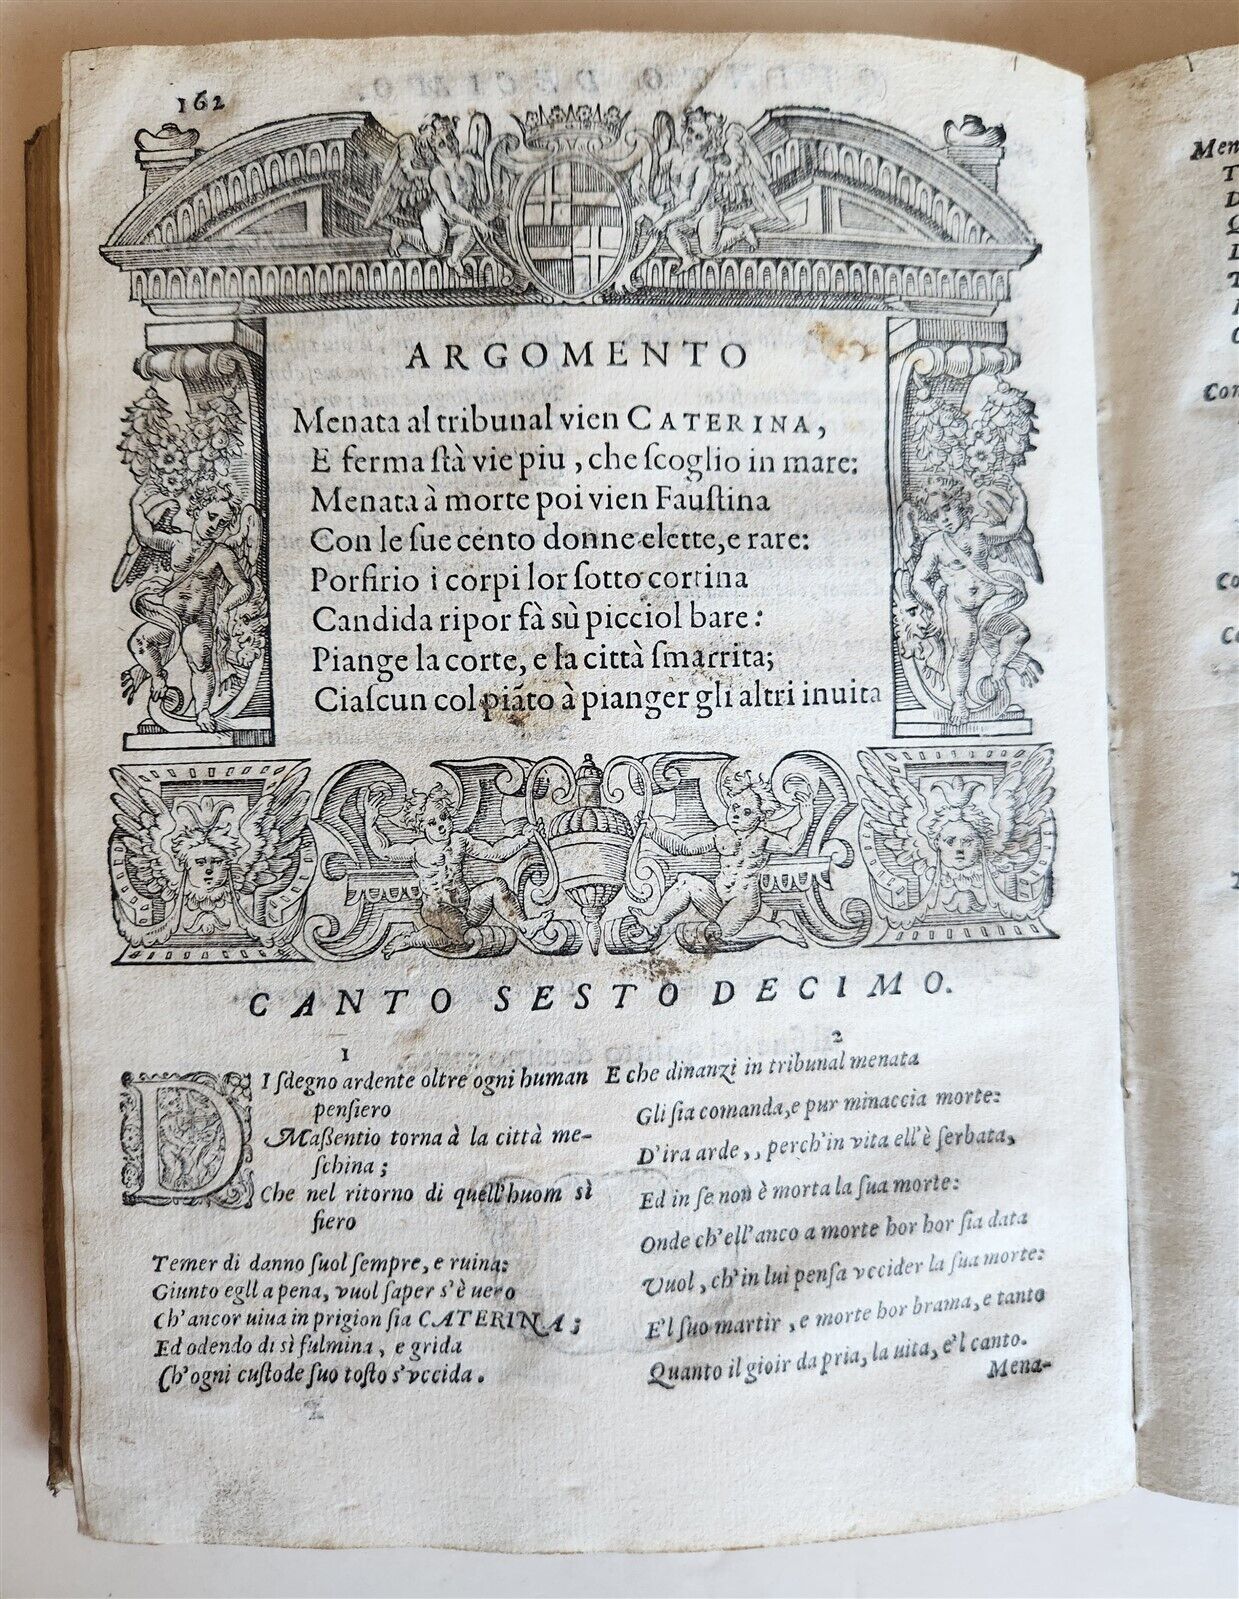 162
ARGOMENTO
Menata al tribunal vien CATERINA,
E ferma ſtà vie piu, che ſcoglio in mare:
Menata à morte poi vien Fauſtina
Con le ſue cento donne elette, e rare:
Porfirio i corpi lor ſotto cortina
Candida ripor fà sù picciol bare:
Piange la corte, e la città ſmarrita;
Ciaſcun col piãto à pianger gli altri inuita
CANTO SESTODECIMO.
1
DI ſdegno ardente oltre ogni human
penſiero
Maßentio torna à la città me-
ſchina;
Che nel ritorno di quell'huom sì
fiero
Temer di danno ſuol ſempre, e ruina:
Giunto egli a pena, vuol ſaper s'è uero
Ch'ancor uiua in prigion ſia CATERINA;
Ed odendo di sì fulmina, e grida
Ch'ogni cuſtode ſuo toſto s'vccida.
2
E che dinanzi in tribunal menata
Gli ſia comanda, e pur minaccia morte:
D'ira arde,, perch'in vita ell'è ſerbata,
Ed in ſe non è morta la ſua morte:
Onde ch'ell'anco a morte hor hor ſia data
Vuol, ch'in lui penſa vccider la ſua morte:
E'l ſuo martir, e morte hor brama, e tanto
Quanto il gioir da pria, la uita, e'l canto.
Mena-
Men
Con
Co